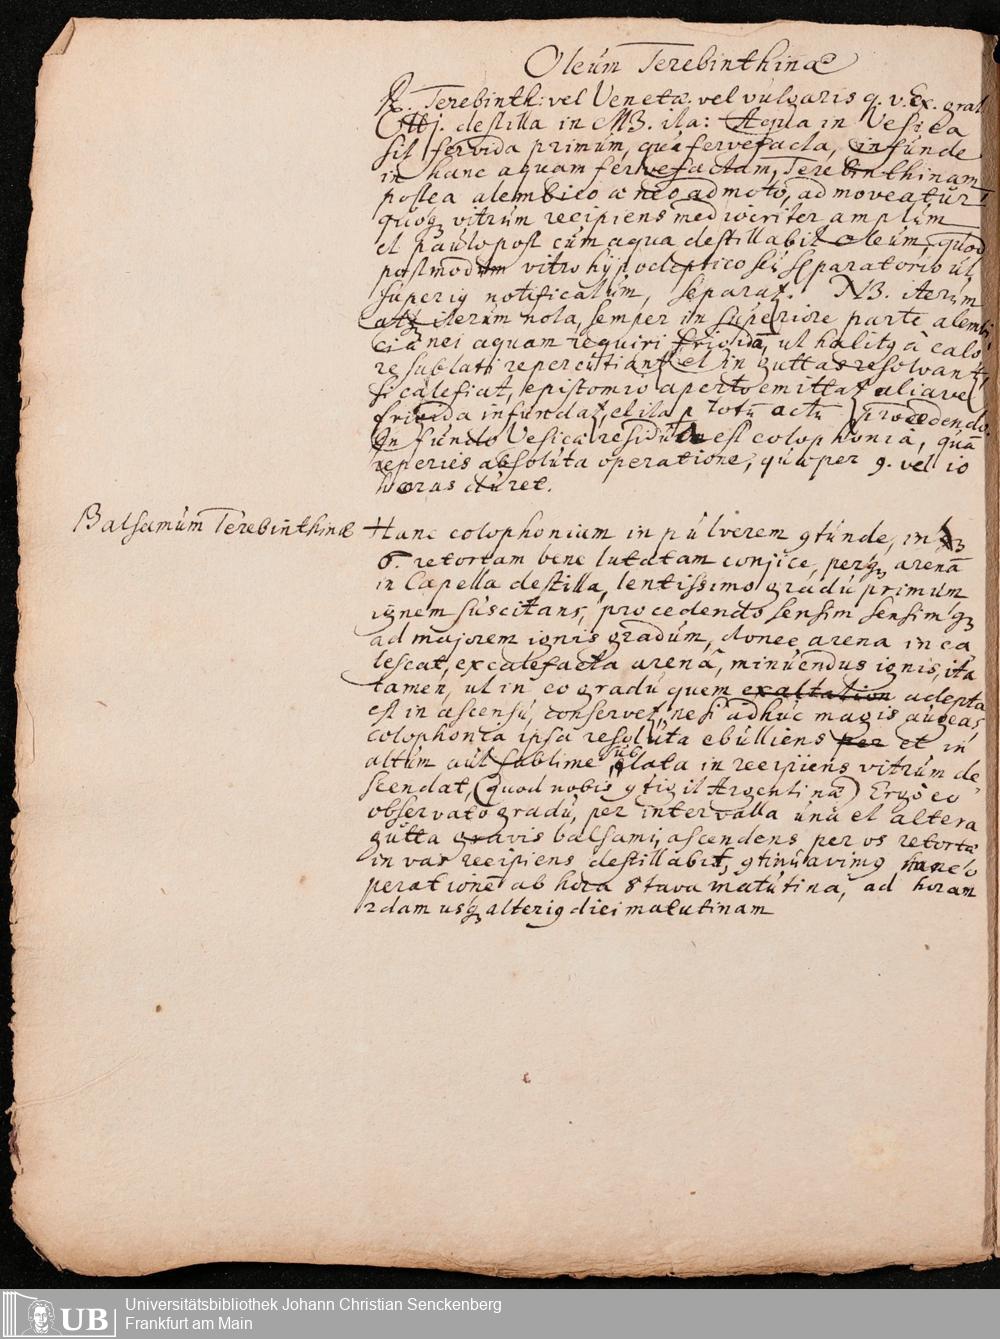 Oleum Terebinthinæ
℞. Terebinth: vel Venetæ vel vulgaris q. v. Ex. grat.
destilla in MB. ita: Aqua in Vesica
sit fervida primum, qua fervefacta, infunde
in hanc aquam fervefactam, Terebinthinam
postea alembico æneo admoto, admoveatur
quoqꝫ vitrum recipiens mediocriter amplum
et paulo post cum aqua destillabit oleum, quod
postmodum vitro hypocleptico seu separatorio ut
superiꝰ notificatum, separat. NB. iterum
atqꝫ iterum nota, semper in superiore parte alembi
ci ænei aquam requiri frigidã, ut halitꝰ à calo
re sublati repercutiant et in guttas resolvant
si calefiat, epistomio aperto emittat aliave
frigida infundat, et ita p totũ actũ procedendo.
In fundo Vesicæ residuũ est colophonia, quã
reperies absoluta operatione, quæ per 9. vel 10
horas duret.
Balsamum Terebinthinæ
Hanc colophoniam in pulverem ꝯtunde, in
6. retortam bene lutatam conjice, perqꝫ arenã
in Capella destilla, lentissimo gradu primum
ignem suscitans, procedendo sensim sensimqꝫ
ad majorem ignis gradum, donec arena inca
lescat, excalefacta arenâ, minuendus ignis, ita
tamen, ut in eo gradu quem exaltation adepta
est in ascensu, conservet, ne si adhuc magis augeas,
colophonia ipsa resoluta ebulliens per et in
altum aut sublime sub elata in recipiens vitrum de
scendat, (quod nobis ꝯtigit Argentinæ) Ergo eo
observato gradu, per intervalla una et altera
gutta gravis balsami, ascendens per os retortæ
in vas recipiens destillabit, ꝯtinuavimꝰ hanc o
perationẽ ab hora 8tava matutina, ad horam
2dam usqꝫ alteriꝰ diei matutinam
Universitätsbibliothek Johann Christian Senckenberg
Frankfurt am Main
UB